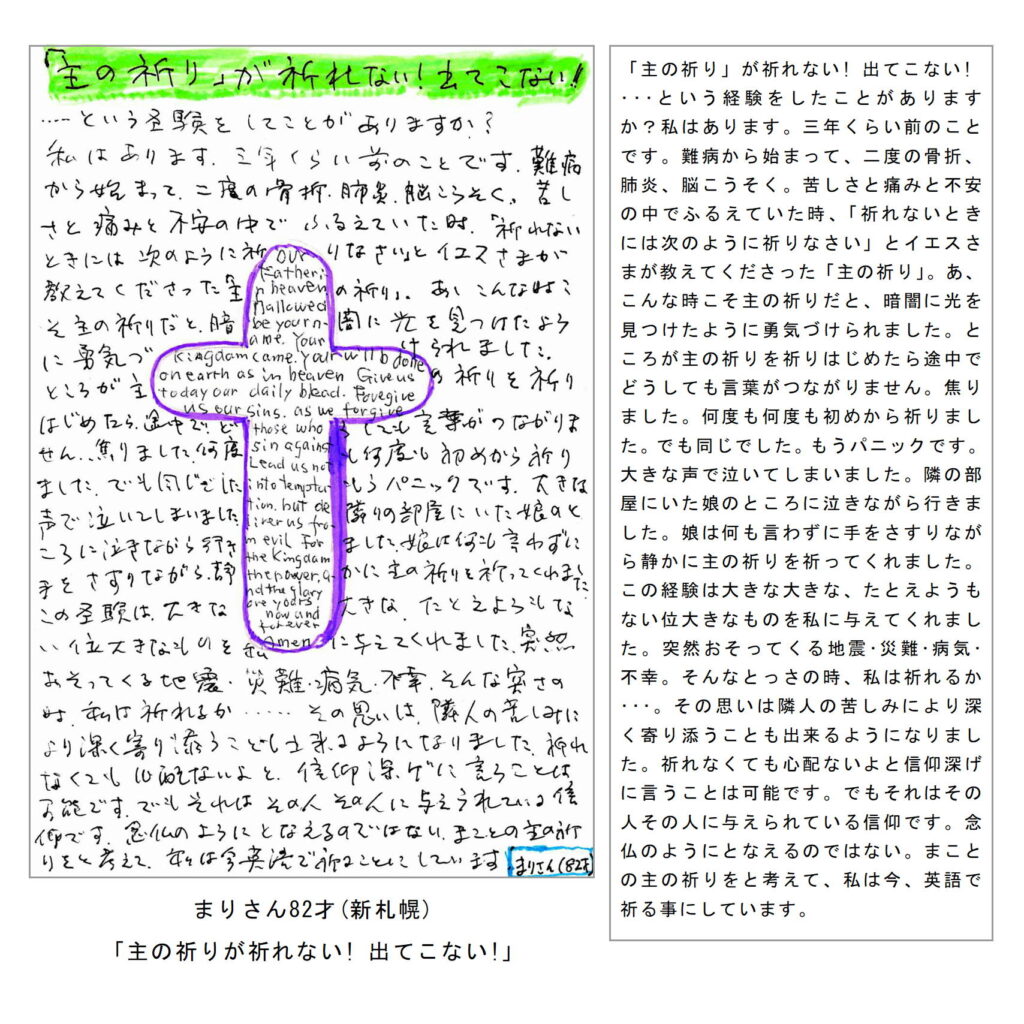 「主の祈り」が祈れない！出てこない！！
……という経験をしてことがありますか？
私はあります．三年くらい前のことです．難病
から始まって、二度の骨折．肺炎．脳こうそく。苦し
さと痛みと不安の中で ふるえていた時．「祈れない
ときには次のように祈りなさい」とイエスさまが
教えてくださった「主の祈り」． あ、こんな時こ
そ主の祈りだと．暗闇に光を見つけたよう
に勇気づけられました．
ところが主の祈りを祈り
はじめたら、途中でどうしても言葉がつながりま
せん．焦りました．何度も何度も初めから祈り
ました．でも同じでした もうパニックです．大きな
声で泣いてしまいました 隣りの部屋にいた娘のと
ころに泣きながら行きました．娘は何も言わずに
手をさすりながら．静かに主の祈りを祈ってくれました
この経験は．大きな大きな．たとえようもな
い位大きなものを私に与えてくれました．突然
おそってくる地震・災難・病気・不幸．そんな突さの
時．私は祈れるか…… その思いは．隣人の苦しみに
より深く寄り添うことも出来るようになりました．祈れ
なくても心配ないよと．信仰深げに言うことは
可能です．でもそれは その人その人に与えられている信
仰です．念仏のようにとなえるのではない．まことの主の祈
りをと考えて、私は今英語で祈ることにしています
まりさん(82才)
our
Father i
n heaven
Hallowed
be your n-
ame. Your
Kingdam came. Your will b done
on earth as in heaven Give us
today our daily blead. Foregive
us our sins. as we forgive
those who
sin against
Lead us not
into tempta-
tion. but de
liver us fro
m evil For
the Kingdam
the power, a-
nd the glary
are yours
now and
forever
Amen
まりさん82才(新札幌)
「主の祈りが祈れない! 出てこない!」
「主の祈り」が祈れない! 出てこない!
･･･という経験をしたことがあります
か？私はあります。三年くらい前のこと
です。難病から始まって、二度の骨折、
肺炎、脳こうそく。苦しさと痛みと不安
の中でふるえていた時、「祈れないとき
には次のように祈りなさい」とイエスさ
まが教えてくださった「主の祈り」。あ、
こんな時こそ主の祈りだと、暗闇に光を
見つけたように勇気づけられました。と
ころが主の祈りを祈りはじめたら途中で
どうしても言葉がつながりません。焦り
ました。何度も何度も初めから祈りまし
た。でも同じでした。もうパニックです。
大きな声で泣いてしまいました。隣の部
屋にいた娘のところに泣きながら行きま
した。娘は何も言わずに手をさすりなが
ら静かに主の祈りを祈ってくれました。
この経験は大きな大きな、たとえようも
ない位大きなものを私に与えてくれまし
た。突然おそってくる地震･災難･病気･
不幸。そんなとっさの時、私は祈れるか
･･･。その思いは隣人の苦しみにより深
く寄り添うことも出来るようになりまし
た。祈れなくても心配ないよと信仰深げ
に言うことは可能です。でもそれはその
人その人に与えられている信仰です。念
仏のようにとなえるのではない。まこと
の主の祈りをと考えて、私は今、英語で
祈る事にしています。